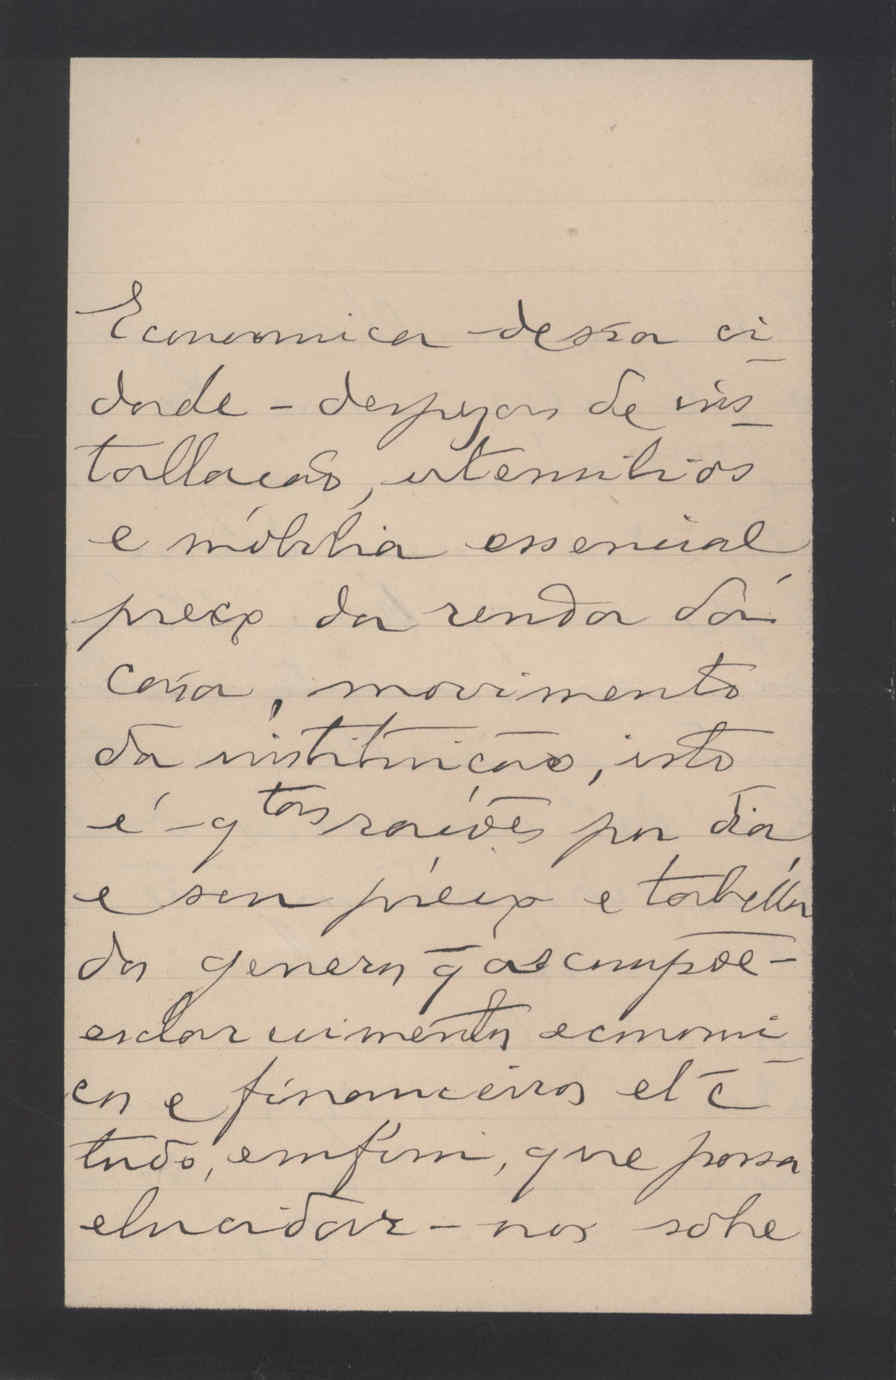 Economica dessa ci
dade - despezas de ins
tallação, utensilios
e móbilia essencial
preço da renda da
casa, movimento
da instituição, isto
é - qtas rações por dia
e seu preço e tabella
dos generos q̄ as compõe -
esclarecimentos economi
cos e financeiros etc̄
tudo, emfim, que possa
elucidar-nos sobre